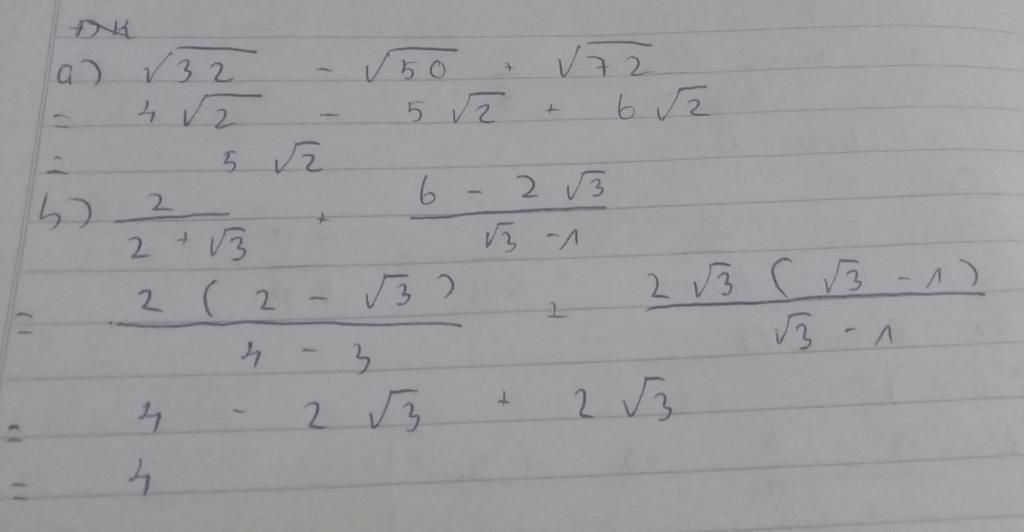 ĐK
a) √32 - √50 + √72
= 4√2 - 5√2 + 6√2
= 5√2
b) 2/(2+√3) + (6 - 2√3)/(√3 - 1)
= 2(2 - √3)/(4 - 3) + 2√3(√3 - 1)/(√3 - 1)
= 4 - 2√3 + 2√3
= 4